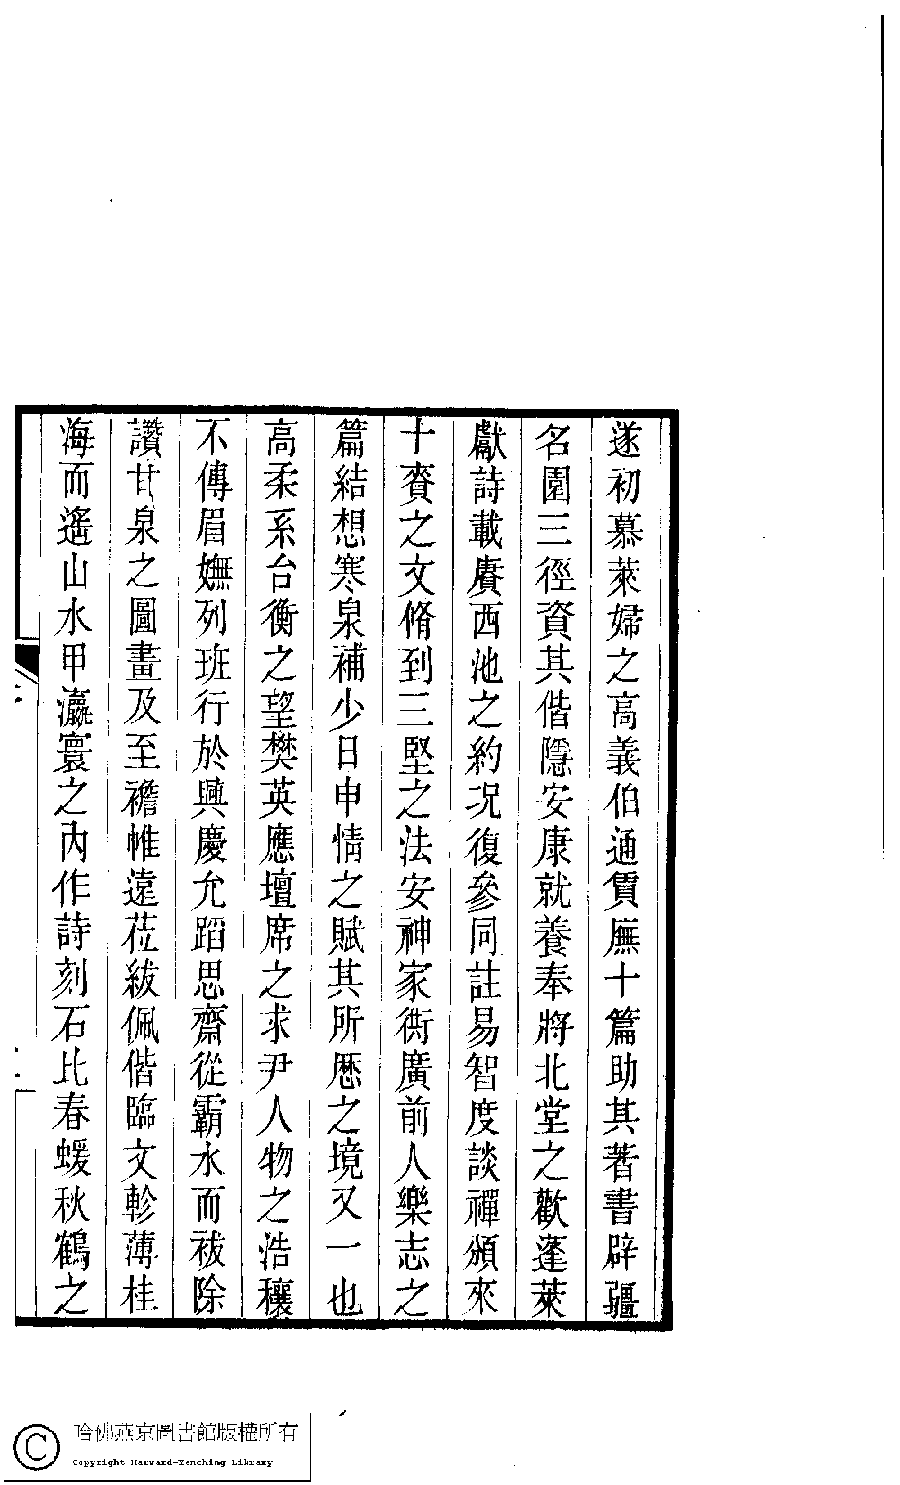 遂初慕萊婦之高義伯通賃廡十篇助其著書辟疆
名園三徑資其偕隱安康就養奉將北堂之歡蓬萊
獻詩載賡西池之約况復參同註易智度談禪頻來
十賚之文脩到三堅之法安神家衖廣前人樂志之
篇結想寒泉補少日申情之賦其所歷之境又一也
高柔系台衡之望樊英應壇席之求尹人物之浩穰
不傳眉嫵列班行於興慶允蹈思齋從霸水而祓除
讚甘泉之圖畫及至襜帷遠莅紱佩偕臨文軫薄桂
海而遙山水甲瀛寰之內作詩刻石比春蝯秋鶴之
哈佛燕京圖書館版權所有
Copyright Harvard-Yenching Library